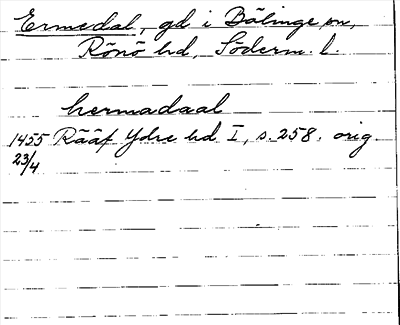 Ermedal, gd i Bälinge sn,
Rönö hd, Söderm. l.
hermadaal
1455 Rääf Ydre hd I, s. 258. orig.
23/4